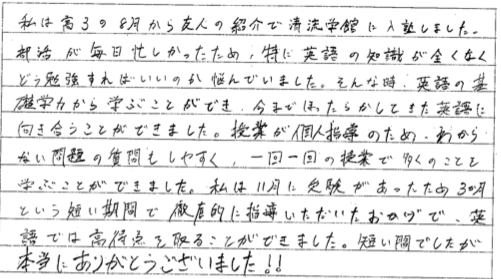 私は高3の8月から友人の紹介で清流学館に入塾しました。
部活が毎日忙しかったため、特に英語の知識が全くなく
どう勉強すればいいのか悩んでいました。そんな時、英語の基
礎学力から学ぶことができ、今までほったらかしてきた英語に
向き合うことができました。授業が個人指導のため、わから
ない問題の質問もしやすく、一回一回の授業で多くのことを
学ぶことができました。私は11月に受験があったため3か月
という短い期間で徹底的に指導いただいたおかげで、英
語では高得点を取ることができました。短い間でしたが
本当にありがとうございました!!